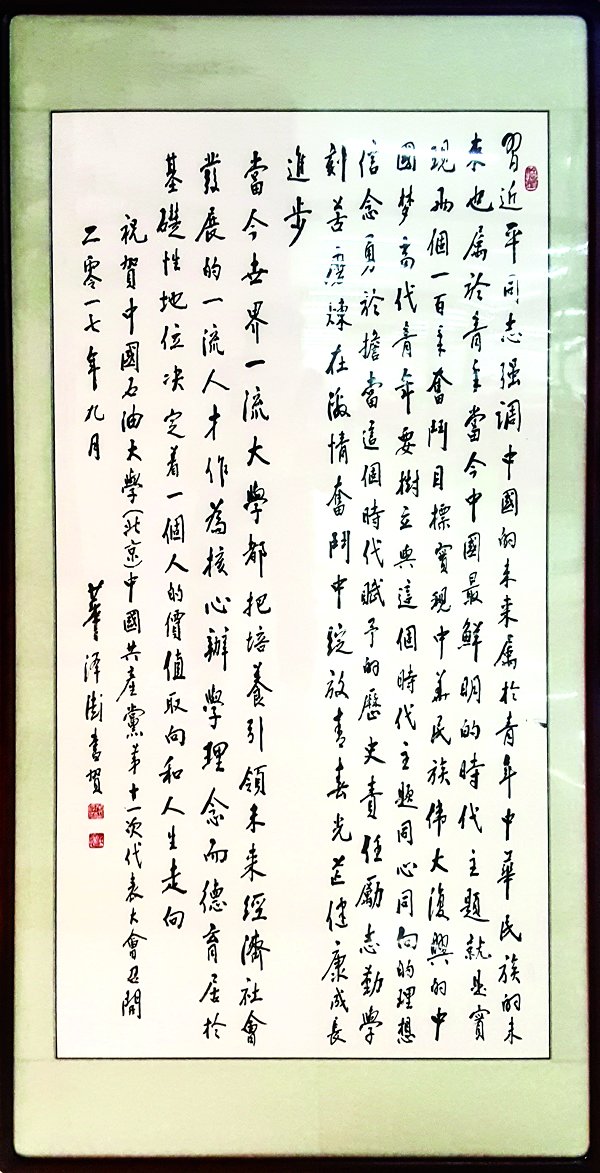 習近平同志强調中國的未来属於青年中華民族的未
来也属於青年當今中國最鮮明的時代主題就是實
現兩個一百年奮鬥目標實現中華民族偉大復興的中
國梦當代青年要樹立與這個時代主题同心同向的理想
信念勇於擔當這個時代賦予的歷史責任勵志勤學
刻苦磨煉在激情奮鬥中綻放青春光芒健康成長
進步
當今世界一流大學都把培養引領未来經濟社會
發展的一流人才作為核心辦學理念而德育居於
基礎性地位决定着一個人的價值取向和人生走向
祝賀中國石油大學(北京)中國共産黨第十一次代表大會召開
二零一七年九月
華澤澍書賀